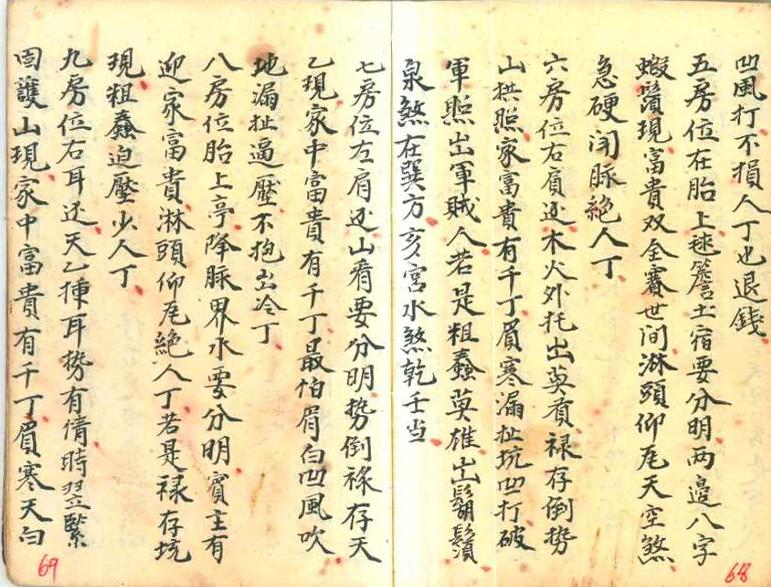 凹風打不損人丁也退錢
五房位在胎上毬簷土宿要分明两邉八字
蝦鬚現富貴双全賽世间淋頭仰瓦天空煞
急硬闭脉絶人丁
六房位右肩还木火外托出英賓禄存倒势
山拱照家富貴有千丁眉寒漏扯坑凹打破
軍照出軍賊人若是粗蠢英雄出鬍鬚
泉煞在巽方亥宫水煞乾壬当
68
七房位左肩还山肴要分明势倒禄存天
乙現家中富貴有千丁最怕肩白凹風吹
地漏扯逼壓不抱出冷丁
八房位胎上亭降脉界水要分明賓主有
迎家富貴淋頭仰瓦絶人丁若是禄存坑
現粗蠢迫壓少人丁
九房位右耳还天乙揀耳势有情時翌緊
固護山現家中富貴有千丁眉寒天白
69